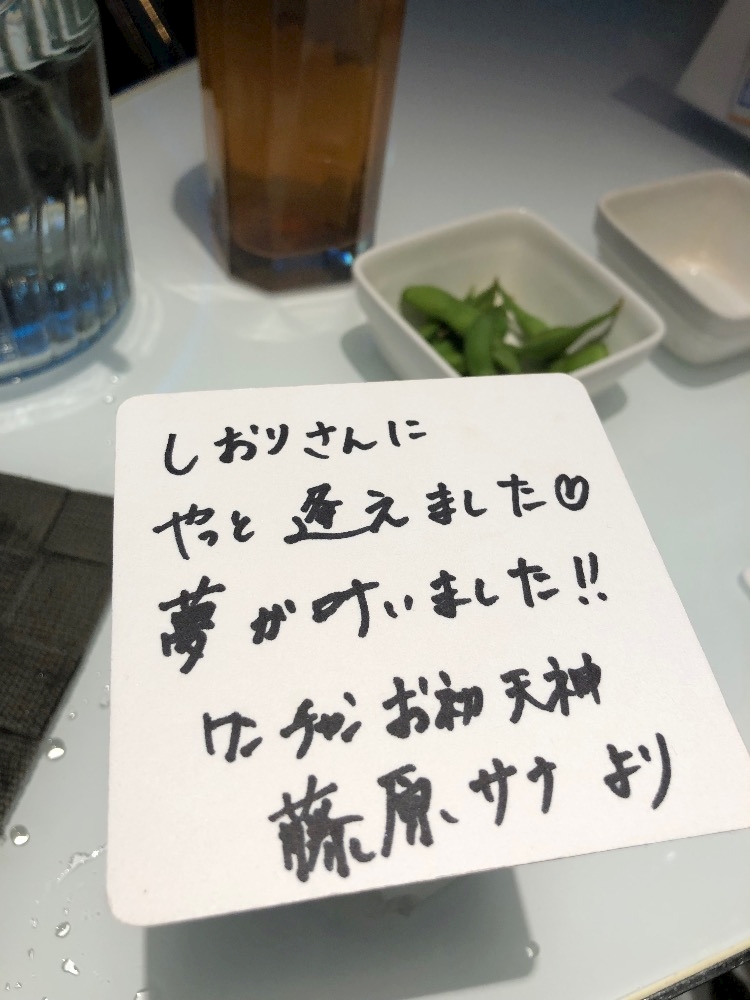 しおりさんに
やっと逢えました♡
夢が叶いました!!
ワンチャンお初天神
藤原サナより